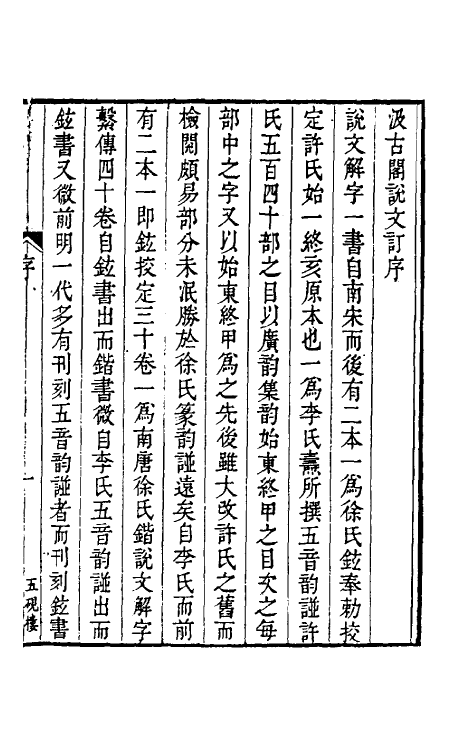 汲古閣說文訂序
說文解字一書自南宋而後有二本一爲徐氏鉉奉勅挍
定許氏始一終亥原本也一爲李氏燾所撰五音韵譜許
氏五百四十部之目以廣韵集韵始東終甲之目次之每
部中之字又以始東終甲爲之先後雖大改許氏之舊而
檢閱頗易部分未泯勝於徐氏篆韵譜遠矣自李氏而前
有二本一即鉉挍定三十卷一爲南唐徐氏鍇說文解字
繫傳四十卷自鉉書出而鍇書微自李氏五音韵譜出而
鉉書又微前明一代多有刊刻五音韵譜者而刊刻鉉書
序
一
五硯樓